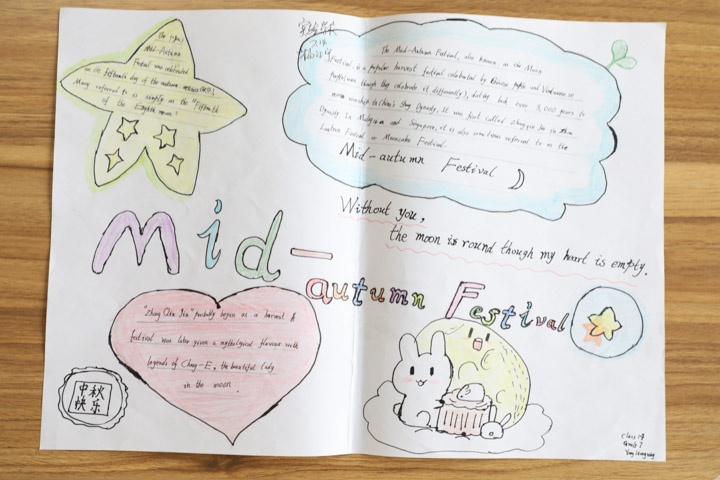 Mid-Autumn
Festival was celebrated
on the fifteenth day of the autumn
Many referred to is simply as the "Fifteenth
of the Eighth moon".
The Mid-Autumn Festival, also known as the Moon
Festival, is a popular harvest festival celebrated by Chinese people and Vietnamese
(even though they celebrate it differently), dating back over 3,000 years to
moon worship in China's Shang Dynasty. It was first called Zhongqiu Jie in Zhou
Dynasty. In Malaysia and Singapore, it is also sometimes referred to as the
Lantern Festival or Mooncake Festival.
Mid-autumn Festival
Without you,
the moon is round though my heart is empty.
Mid-
autumn Festival
"Zhong Qiu Jie" probably began as a harvest
festival was later given a mythological flavour with
legends of Chang-E, the beautiful lady
in the moon.
中秋
快乐
Class 14
Grade 7